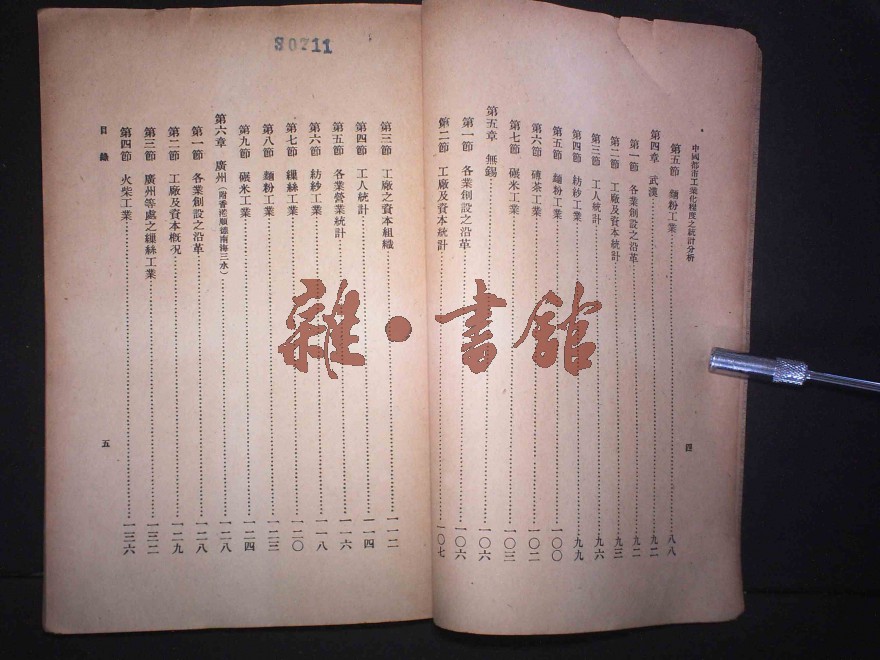 中國都市工業化程度之統計分析
第五節 麵粉工業 八八
第四章 武漢 九二
第一節 各業創設之沿革 九二
第二節 工廠及資本統計 九三
第三節 工人統計 九六
第四節 紡紗工業 九九
第五節 麵粉工業 一〇〇
第六節 磚茶工業 一〇二
第七節 碾米工業 一〇三
第五章 無錫 一〇六
第一節 各業創設之沿革 一〇六
第二節 工廠及資本統計 一〇七
四
80711
第三節 工廠之資本組織 一一二
第四節 工人統計 一一四
第五節 各業營業統計 一一六
第六節 紡紗工業 一一八
第七節 繅絲工業 一二〇
第八節 麵粉工業 一二三
第九節 碾米工業 一二四
第六章 廣州(附香港順德南海三水) 一二八
第一節 各業創設之沿革 一二八
第二節 工廠及資本概況 一二九
第三節 廣州等處之繅絲工業 一三二
第四節 火柴工業 一三六
目錄
五
雜·書館